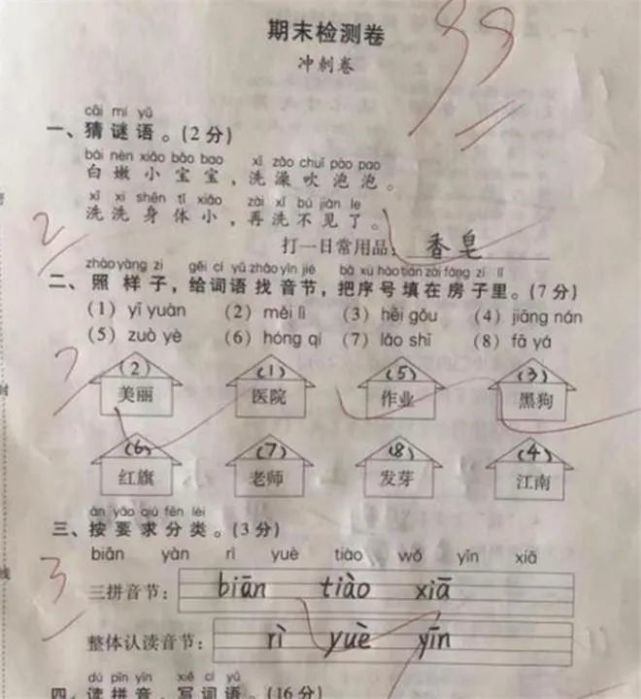 期末检测卷
99
冲刺卷
cāi mí yǔ
一、猜谜语。(2分)
bái nèn xiǎo bǎo bao xǐ zǎo chuī pào pao
白嫩小宝宝，洗澡吹泡泡。
xǐ xi shēn tǐ xiǎo zài xǐ bú jiàn le
洗洗身体小，再洗不见了。
2
打一日常用品：香皂
zhào yàng zi gěi cí yǔ zhǎo yīn jié bǎ xù hào tián zài fáng zi lǐ
二、照样子，给词语找音节，把序号填在房子里。(7分)
(1) yī yuàn (2) měi lì (3) hēi gǒu (4) jiāng nán
(5) zuò yè (6) hóng qí (7) lǎo shī (8) fā yá
7
(2) (1) (5) (3)
美丽 医院 作业 黑狗
(6) (7) (8) (4)
红旗 老师 发芽 江南
àn yāo qiú fēn lèi
三、按要求分类。(3分)
biān yàn rì yuè tiào wǒ yīn xiā
3
三拼音节： biān tiào xiā
整体认读音节： rì yuè yīn
dú pīn yīn xiě cí yǔ
四、读拼音，写词语。(16分)